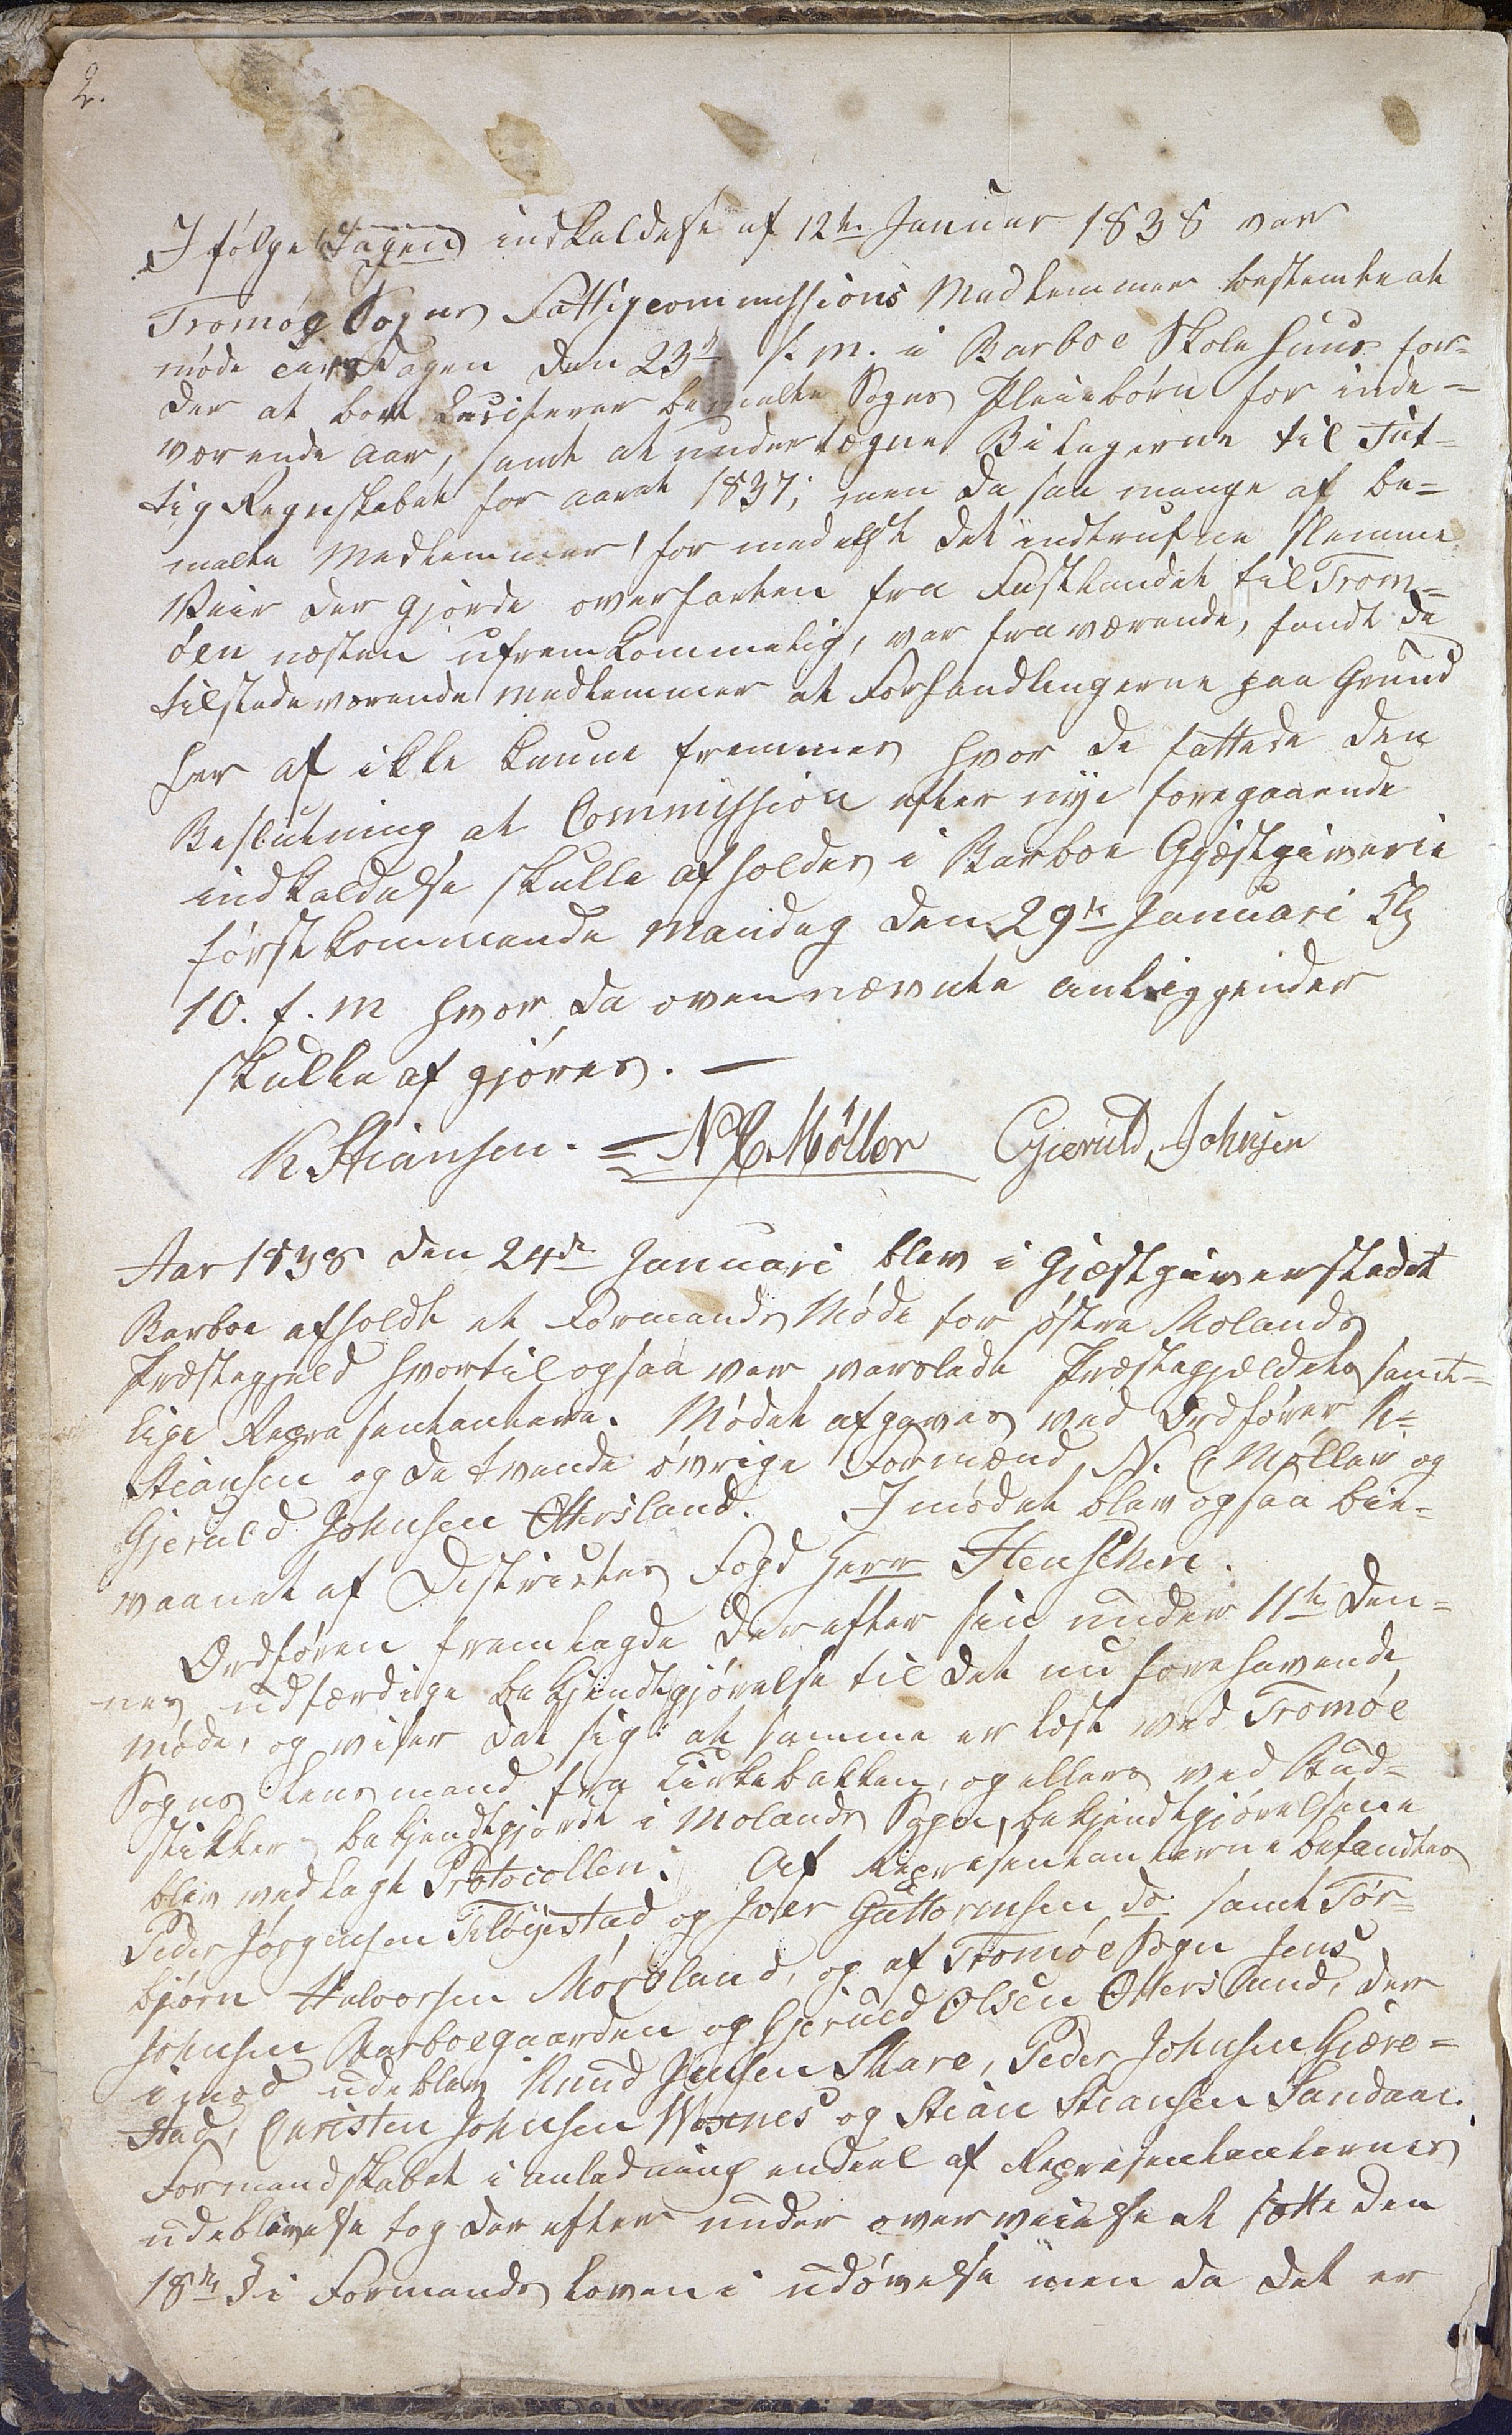 2.
I følge Dagens indkaldelse af 12te Januar 1838 var
Tromøe Sogns Fattigcommissions Medlemmer bestemte at
møde Dagen den 23de f. m. i Barboe Skolehuus for=
der at bort bemelte Sogns Pleiebørn for inde=
værende aar, samt at undertegne Bilagerne til Fat=
tig Regnskabet for aaret 1837; men da saa mange af be=
melte Medlemmer, formedelst det indtrufne slemme
Veir der gjorde overfarten fra Fastlandet til Trom=
øen næsten ufremkommelig, var fraværende, fandt de
tilstedeværende Medlemmer at Forhandlingerne paa Grund
her af ikke kunne fremmes hvor de fattede den
Beslutning at Commission efter nye foregaaende
indkaldelse skulle afholdes i Barboe Gjæstgiverie
førstkommende Mandag den 29de Januari Kl
10. f. m hvor da ovennævnte anliggender
skulle af gjøres. —
K Stiansen. = N C Møller Gjeruld Johnsen
Aar 1838 den 24de Januari blev i Gjæstgiverstedet
Barboe afholdt et Formands Møde for østre Molands
Præstegjeld hvortil ogsaa var varslede Præstegjeldets samt=
lige Repræsentantere. Mødet afgaves ved Ordfører K.
Stiansen og de tvende øvrige Formænd N. C Møller og
Gjeruld Johnsen Ottersland. I mødet blev ogsaa bie=
vaanet af Districtes Fogd Herr Henschien.
Ordføren fremlagde derefter sin under 11te den=
nes udfærdige bekjendtgjørelse til det nu forehavende
møde, og viser det sig at samme er læst ved Tromøe
Sogns Lensmand fra Kirkebakken, og ellers ved Bud=
stikker bekjendtgjordt i Molands Sogn, bekjendtgjørelserne
blev vedlagt Protocollen. Af Repræsentanterne befandtes
Peder Jørgensen Tiløyestad og Iver Guttormsen do. samt Tor=
bjørn Halvorsen Mørland, og af Tromøe Sogn Jens
Johnsen Barboegaarden og Gjeruld Olsen Ottersland, der
imod udeblev Knud Jensen Skare, Peder Johnsen Giære=
stad, Christen Johnsen Woxnes og Stian Stiansen Sandaae.
Formandskabet i anledning endeel af Repræsentanternes
udeblivelse tog derefter under overveielse at sætte den
18de § i Formands loven i udøvelse men da det er